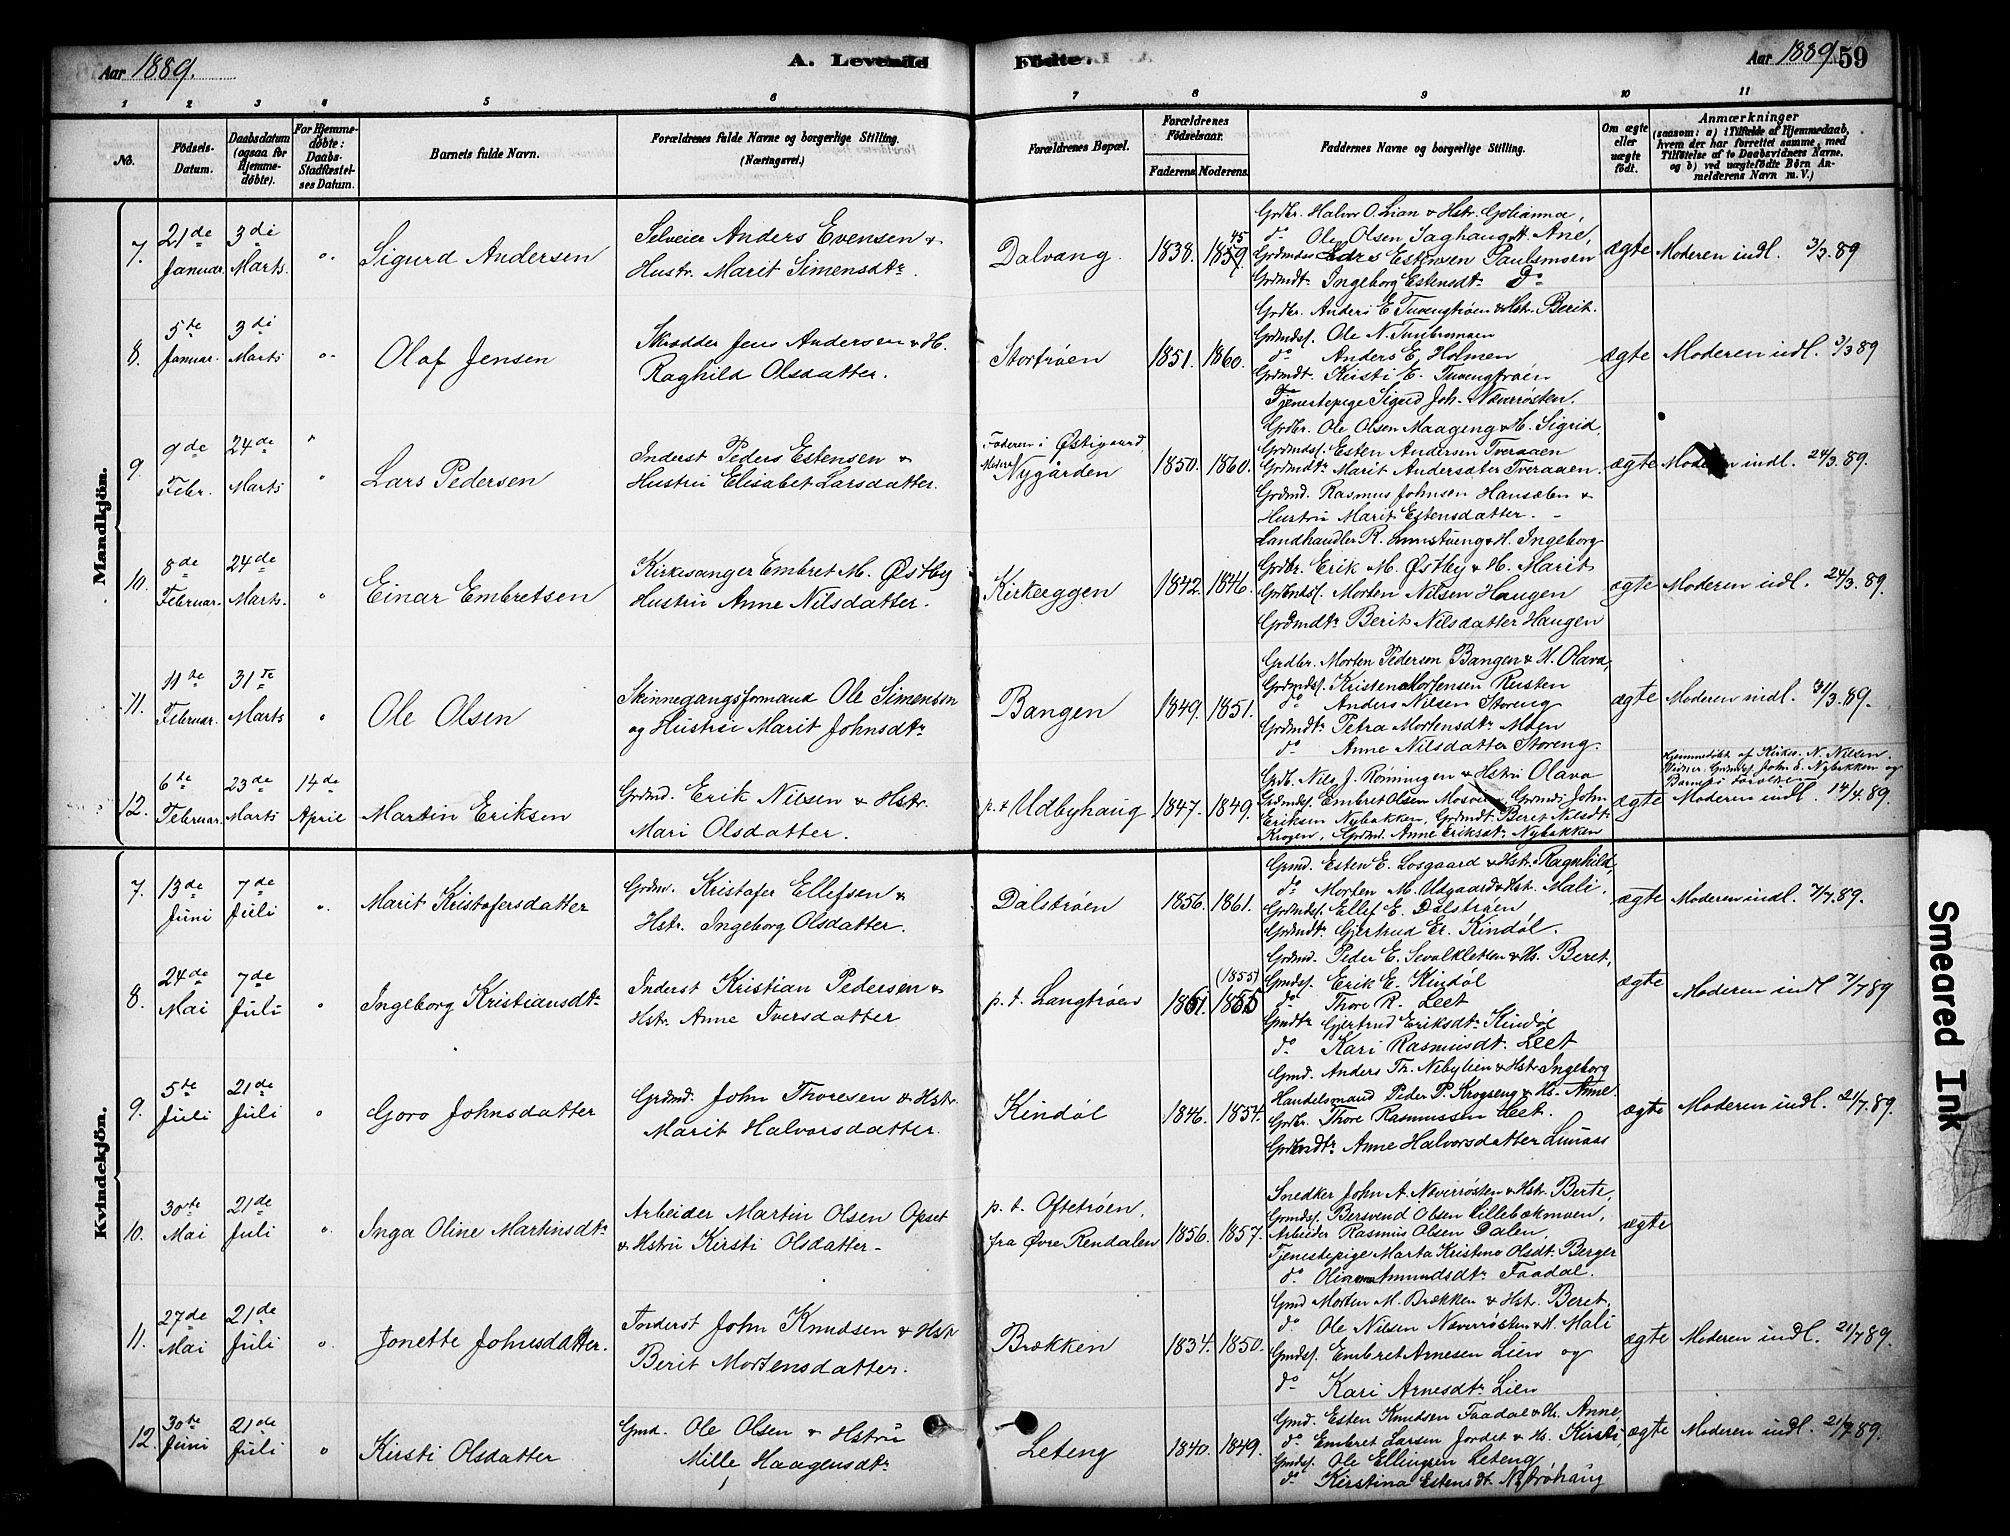 Aar 1889.
A. Levende Fødte.
Aar 1889
59
1 2 3 4 5 6 7 8 9 10 11
No.
Fødsels-Datum.
Daabsdatum (ogsaa for Hjemme-døbte).
For Hjemme-døbte: Daabs-Stadfæstel-ses Datum.
Barnets fulde Navn.
Forældrenes fulde Navne og borgerlige Stilling.
(Næringsvei.)
Forældrenes Bopæl.
Forældrenes Fødselsaar.
Faderens. Moderens.
Faddernes Navne og borgerlige Stilling.
Om ægte eller uægte født.
Anmærkninger
(saasom: a) i Tilfælde af Hjemmedaab,
hvem der har forrettet samme, med
Tilføielse af to Daabsvidners Navne,
og b) ved uægtefødte Børn An-
melderens Navn m. V.)
Mandkjön.
7. 21de Januar. 3di Marts. " Sigurd Andersen
Selveier Anders Evensen &
Hustr. Marit Simensdtr
Dalvang. 1838. 1859. 45
Grdbr. Halvor O. Lian & Hstr. Golianna,
do Ole Olsen Saghaug H. Ane,
Grdmdss Estensen Paulsmoen
Grdmdtr Ingeborg Estensdtr Do
ægte Moderen indl. 3/3.89
8. 5te Januar. 3di Marts " Olaf Jensen
Skrædder Jens Andersen & H.
Raghild Olsdatter.
Stortrøen 1851. 1860.
Grdbr. Anders E. Tuvengtrøen & Hstr. Berit.
Grdmds. Ole N. Tunbromoen
do Anders E. Holmen
Grdmdt. Kirsti E. Tuvengtrøen
Tjenestepige Sigrid Joh. Næverrøsten.
ægte Moderen indl. 3/3 89
9. 9de Febr. 24de Marts " Lars Pedersen
Inderst Peders Estensen &
Hustru Elisabet Larsdatter.
Faderen i Østigaard
Moderen Nygården 1850. 1860.
Grdbr. Ole Olsen Maageng & H. Sigrid,
Grdmds. Esten Andersen Tveraaen
Grdmdtr Marit Andersdter Tveraaen.
Grdmd. Rasmus Johnsen Hansælen &
Hustru Marit Estensdatter.
ægte Moderen indl. 24/3.89.
10. 8de Februar. 24de Marts. " Einar Embretsen
Kirkesanger Embret M. Østby
Hustru Anne Nilsdatter.
Kirkeeggen 1842. 1846.
Landhandler R. & H. Ingeborg
Grdbr. Erik M. Østby & H. Marit
Grdmds. Morten Nilsen Haugen
Grdmdtr Berit Nilsdatter Haugen
ægte Moderen indl. 24/3.89.
11. 11te Februar. 31te Marts " Ole Olsen
Skinnegangsformand Ole Simensen
og Hustru Marit Johnsdtr
Bangen 1849. 1851.
Grdbr. Morten Pedersen Bangen & H. Olava,
Grdmds. Kristen Mortensen Rusten
do Anders Nilsen Storeng
Grdmdtr Petra Mortensdtr Moen
do Anne Nilsdatter Storeng.
ægte Moderen indl. 31/3.89.
12. 6te Februar. 23de Marts 14de April Martin Eriksen
Grdmd. Erik Nilsen & Hstr.
Mari Olsdatter.
p.t. Udbyhaug 1847. 1849.
Grdb. Nils J. Rønningen & Hstru Olava
Grdmds. Embret Olsen Grdmds. John
Eriksen Nybakken, Grdmdt. Beret Nilsdtr
Krogen, Grdmd. Anne Eriksdtr Nybakken
ægte Hjemmedøbt af Kirkes. N. Nilsen.
Vidner: Grdmds. John E. Nybakken og
Barnets Forældre
Moderen indl. 14/4.89.
Kvindekjön.
7. 13de Juni 7de Juli " Marit Kristofersdatter
Grdm. Kristofer Ellefsen &
Hstr. Ingeborg Olsdatter.
Dalstrøen 1856. 1861.
Gmd. Esten E. Losgaard & Hstr. Ragnhild,
do Morten M. Udgaard & Hst. Mali,
Grdmds. Ellef E. Dalstrøen
Grdmdtr Gjertrud Er. Kindøl.
ægte Moderen indl. 7/7.89.
8. 24de Mai 7de Juli " Ingeborg Kristiansdtr
Inderst Kristian Pedersen &
Hstr. Anne Iversdatter
p.t. Langtrøen 1861. 1855 (1855)
Grdmd. Peder E. Sevalkletten & Hs. Beret,
Gmds. Erik E. Kindøl
do Thore R. Leet
Gmdtr Gjertrud Eriksdtr Kindøl
do. Kari Rasmusdt. Leet
ægte Moderen indl 7/7 89
9. 5te Juli 21de Juli " Goro Johnsdatter
Grdmd. John Thoresen & Hstr.
Marit Halvorsdatter.
Kindøl 1846. 1854.
Gmd. Anders Th. Nebylien & Hstr Ingeborg
Handelsmand Peder P. Krogseng & Hs. Anne.
Grdbr. Thore Rasmussen Leet.
Grdmdtr. Anne Halvorsdatter Lunaas
ægte Moderen indl. 21/7.89.
10. 30te Mai 21de Juli " Inga Oline Martinsdtr
Arbeider Martin Olsen Opset
& Hstru Kirsti Olsdatter-
p.t. Oftetrøen,
fra Øvre Rendalen 1856. 1857.
Snedker John A. Næverrøsten & Hstr. Berte,
Grmds. Bersvend Olsen Lillebækmoen,
Arbeider Rasmus Olsen Dalen,
Tjenestepige Marta Kristine Olsdt. Berger
do. Olina Amundsdtr Faadal.
ægte
11. 27de Mai 21de Juli " Jonette Johnsdatter.
Inderst John Knudsen & Hstr
Berit Mortensdatter.
Brækken 1834. 1850.
Gmd Morten M. Brækken & Hstr. Beret,
do Ole Nilsen Næverrøsten & H. Mali
Gmds. Embret Arnesen Lien og
do Kari Arnesdtr Lien
ægte Moderen indl. 21/7 89.
12. 30te Juni 21de Juli " Kirsti Olsdatter
Gmd. Ole Olsen & Hstrü
Mille Haagensdtr
Leteng 1840. 1849.
Gmd. Esten Knudsen Faadal & Hs. Anne,
do. Embret Larsen Jordet & Hs. Kirsti,
Gmds. Ole Ellingsen Leteng
do Kirstina Estensdt. Nytrøhaug
ægte Moderen indl. 21/7 89.
Smeared Ink